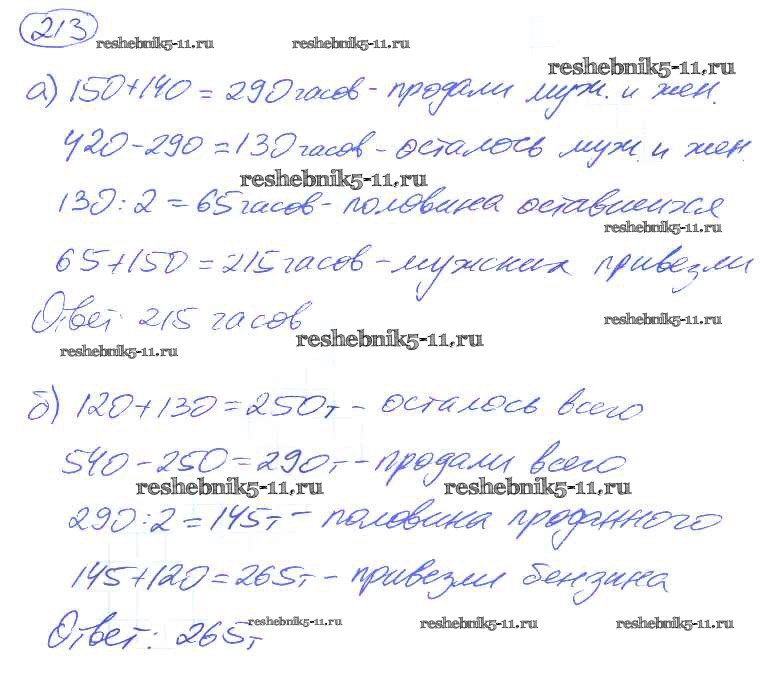 213
reshebnik5-11.ru reshebnik5-11.ru
reshebnik5-11.ru
а) 150+140 = 290 часов - продали муж. и жен.
420-290 = 130 часов - осталось муж. и жен.
reshebnik5-11.ru
130:2 = 65 часов - половина оставшихся
reshebnik5-11.ru
65+150 = 215 часов - мужских привезли
Ответ: 215 часов
reshebnik5-11.ru
reshebnik5-11.ru
reshebnik5-11.ru
б) 120+130 = 250т - осталось всего
540-250 = 290т - продали всего
reshebnik5-11.ru reshebnik5-11.ru
290:2 = 145т - половина проданного
145+120 = 265т - привезли бензина
Ответ: 265т
reshebnik5-11.ru reshebnik5-11.ru reshebnik5-11.ru